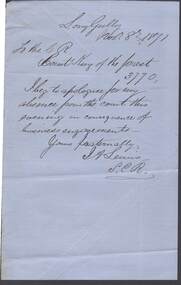 Long Gully
Feb. 8th 1891
To the C. R.
Court King of the forest
3770.
I beg to apologise for my
absence from the court this
evening in consequence of
business engagements
Yours fraternally
J. A. Lewis
S.C.R.